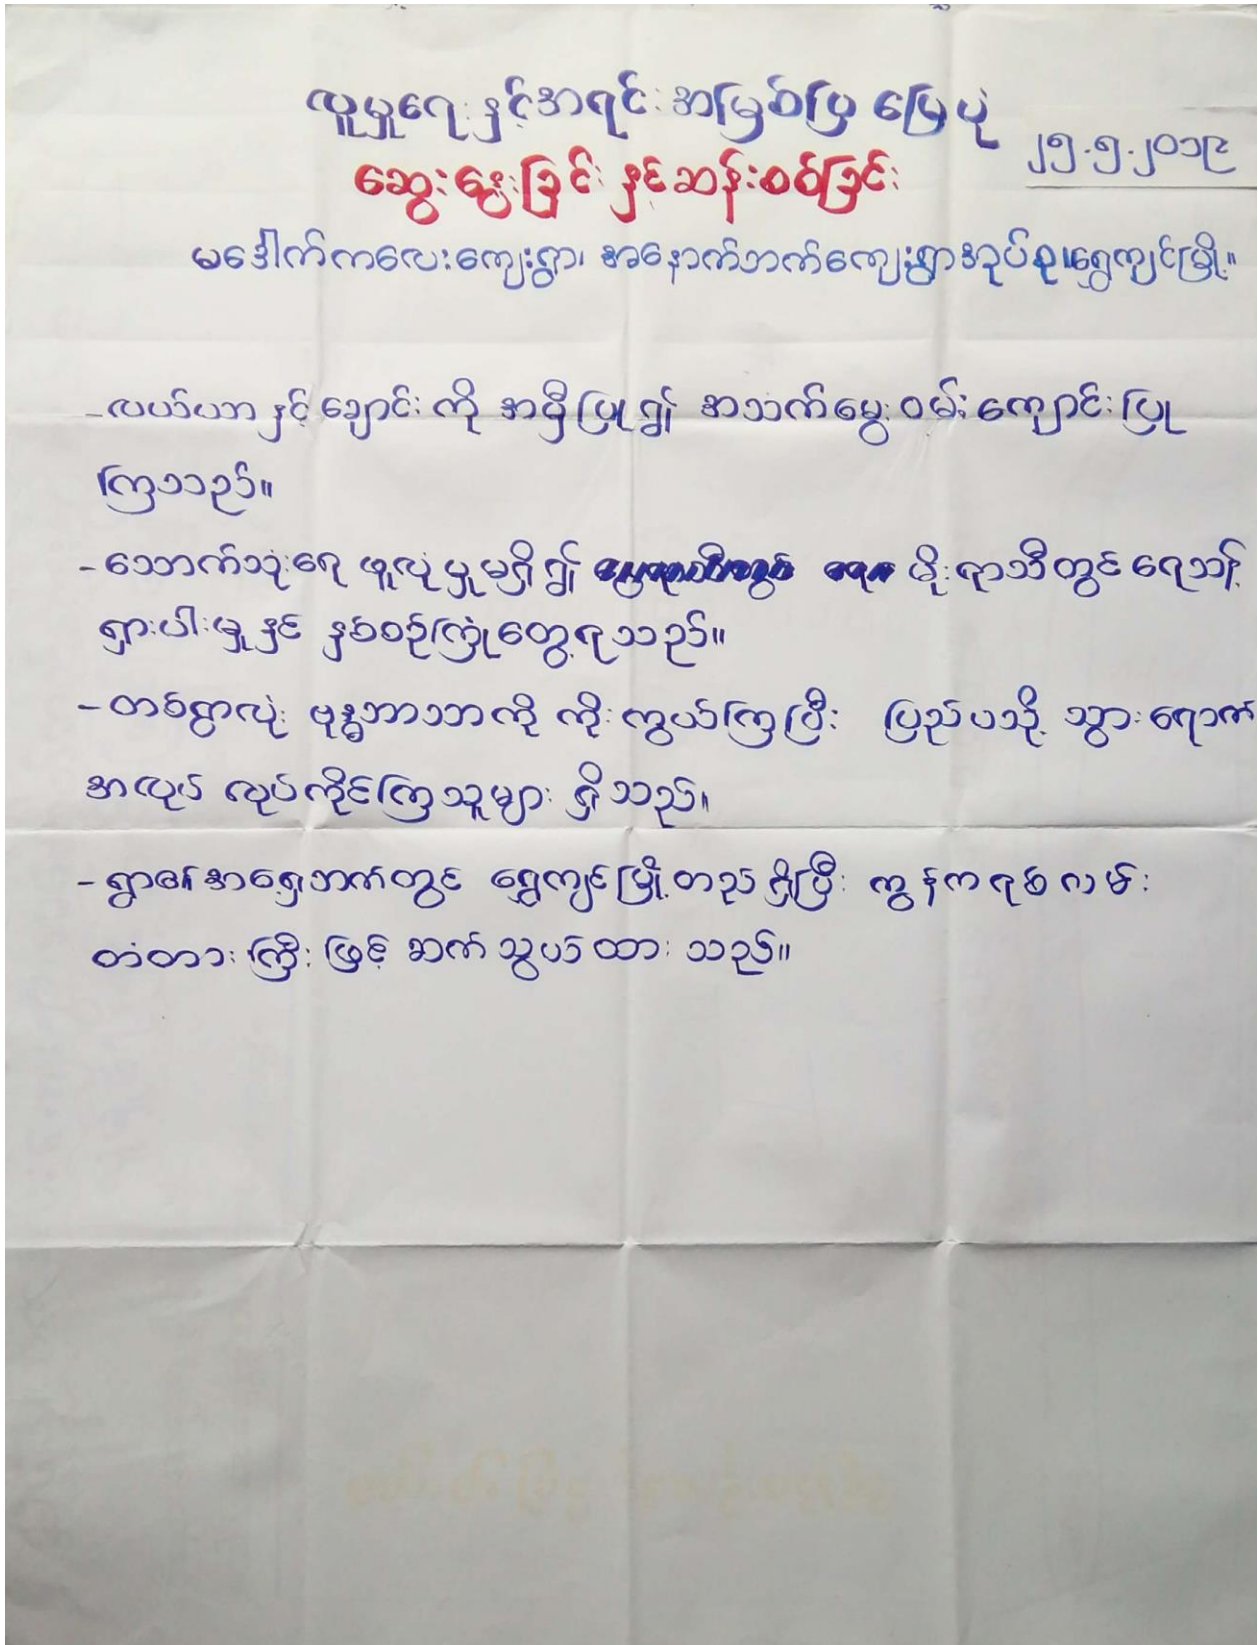 လူမှုရေး နှင့်အရင်းအမြစ်ပြ မြေပုံ
၂၅.၅.၂၀၁၉
ဆွေးနွေးခြင်း နှင့်ဆန်းစစ်ခြင်း
မဒေါက်ကလေးကျေးရွာ၊ အနောက်ဘက်ကျေးရွာအုပ်စု၊ ရွှေကျင်မြို့။
- လယ်ယာ နှင့် ချောင်း ကို အမှီပြု၍ အသက်မွေးဝမ်းကျောင်း ပြု
ကြသည်။
- သောက်သုံးရေ ဖူလုံမှုမရှိ၍ မိုးရာသီတွင် ရေသန့်
ရှားပါးမှုနှင့် နှစ်စဉ်ကြုံတွေ့ရသည်။
- တစ်ရွာလုံး ဗုဒ္ဓဘာသာကို ကိုးကွယ်ကြပြီး ပြည်ပသို့ သွားရောက်
အလုပ် လုပ်ကိုင်ကြသူများ ရှိသည်။
- ရွာ၏အရှေ့ဘက်တွင် ရွှေကျင်မြို့တည်ရှိပြီး ကွန်ကရစ်လမ်း
တံတားကြီးဖြင့် ဆက်သွယ်ထားသည်။